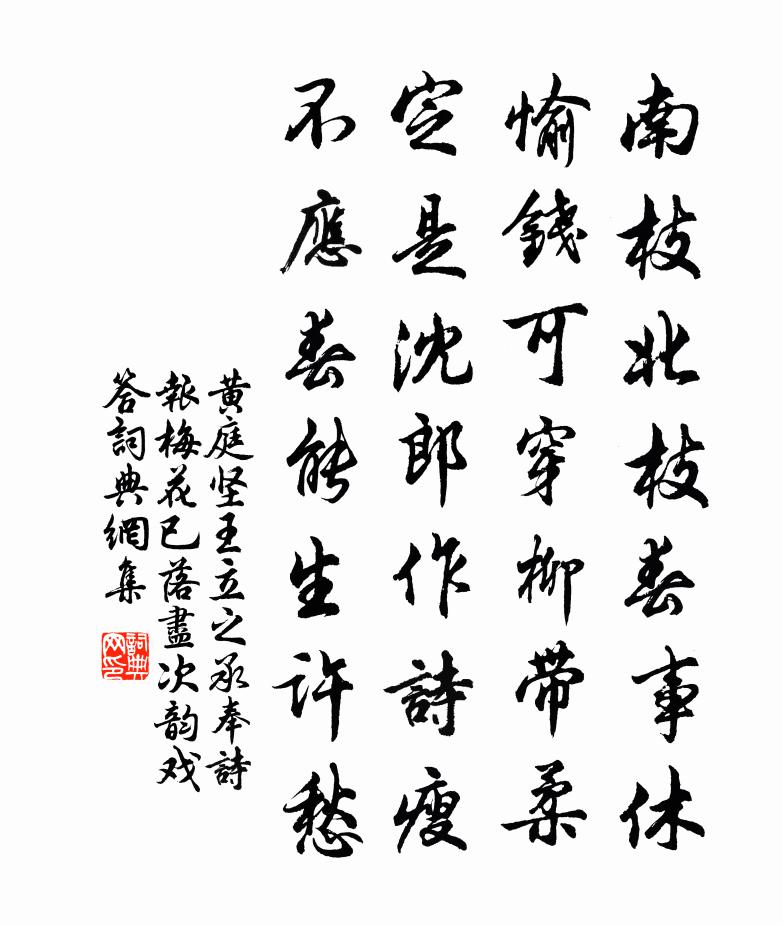 南枝北枝春事休
愉錢可穿柳帶柔
定是沈郎作詩瘦
不應春能生許愁
黄庭坚王立之承奉詩
報梅花已落盡次韵戏
答詞典網集
詞典
网印